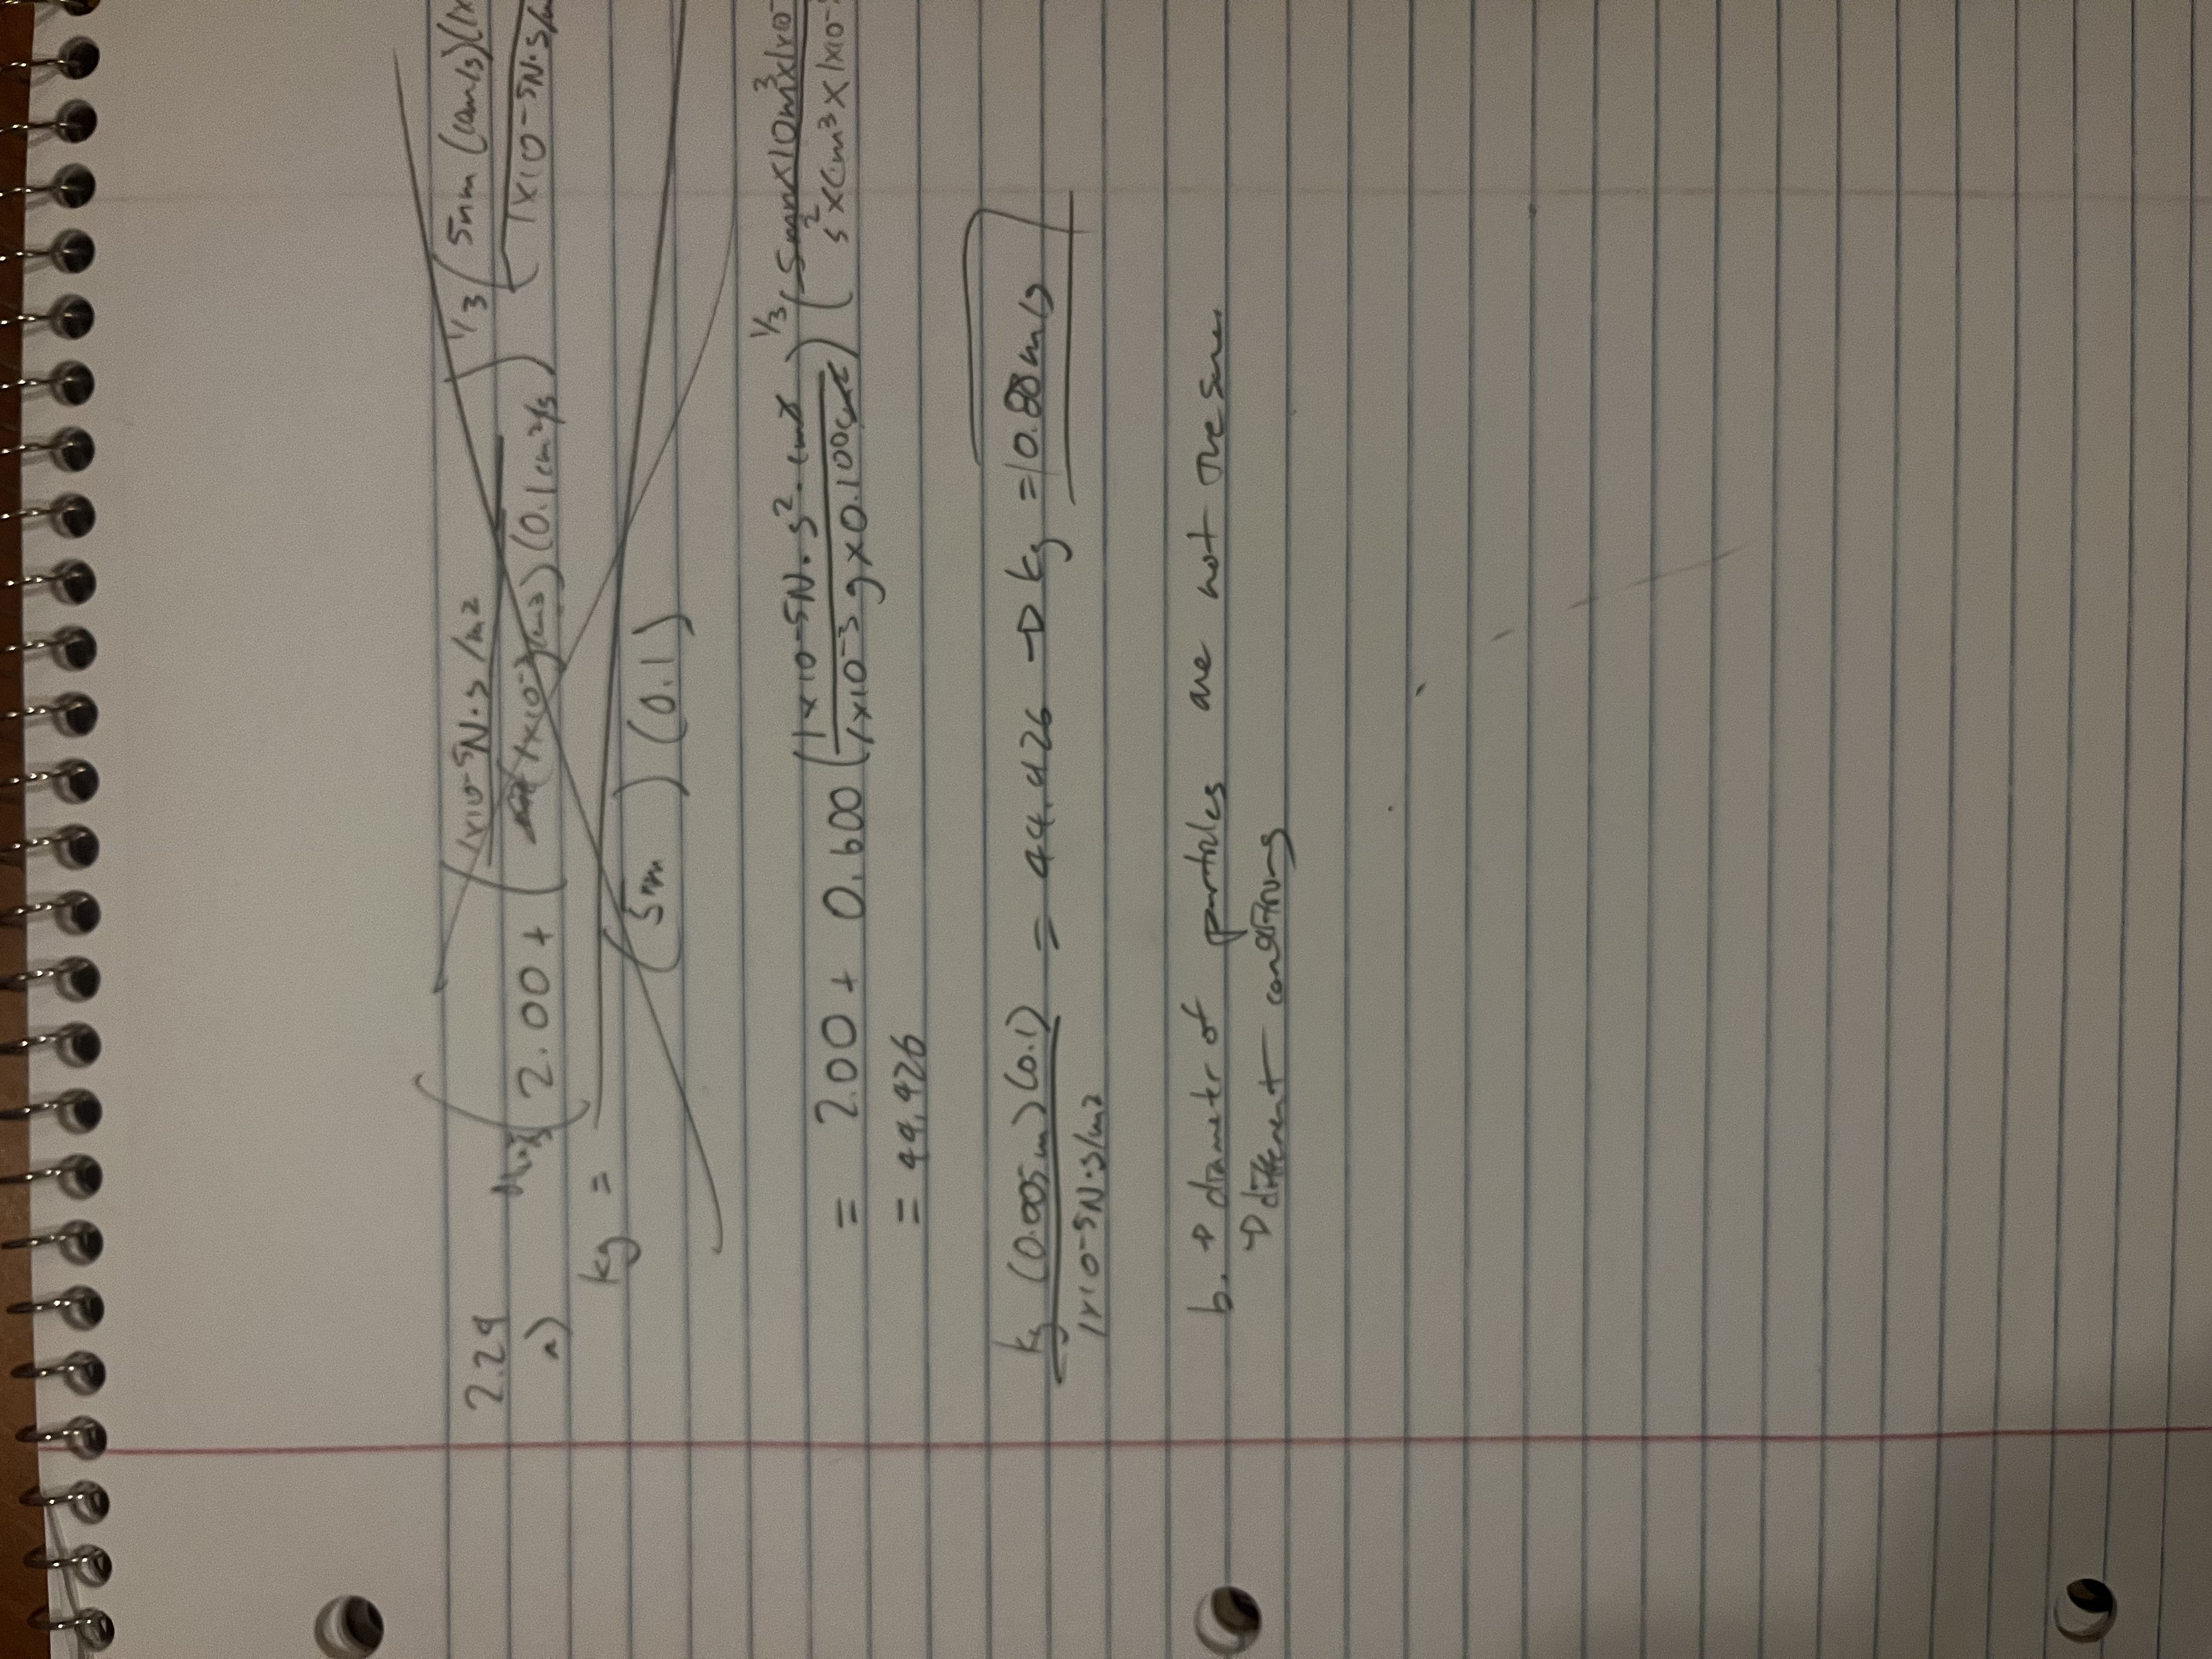 2.29
a)
kg = (2.00 + (1x10-5N·s/m2 / (1x10-3) (cm3) (0.1cm2/s))1/3 (5mm (10m/s)(1x / 1x10-5N·s/m
(5mm) (0.1)
= 2.00 + 0.600 (1x10-5N·s2·cm3 / 1x10-3 g x 0.100cm2)1/3 (5mm x 10m3 x 1x10- / s2 x cm3 x 1x10-5
= 44.426
kg (0.005m)(0.1) / 1x10-5N·s/m2 = 44.426 → kg = 0.88m/s
b. → diameter of particles are not the same
→ different conditions